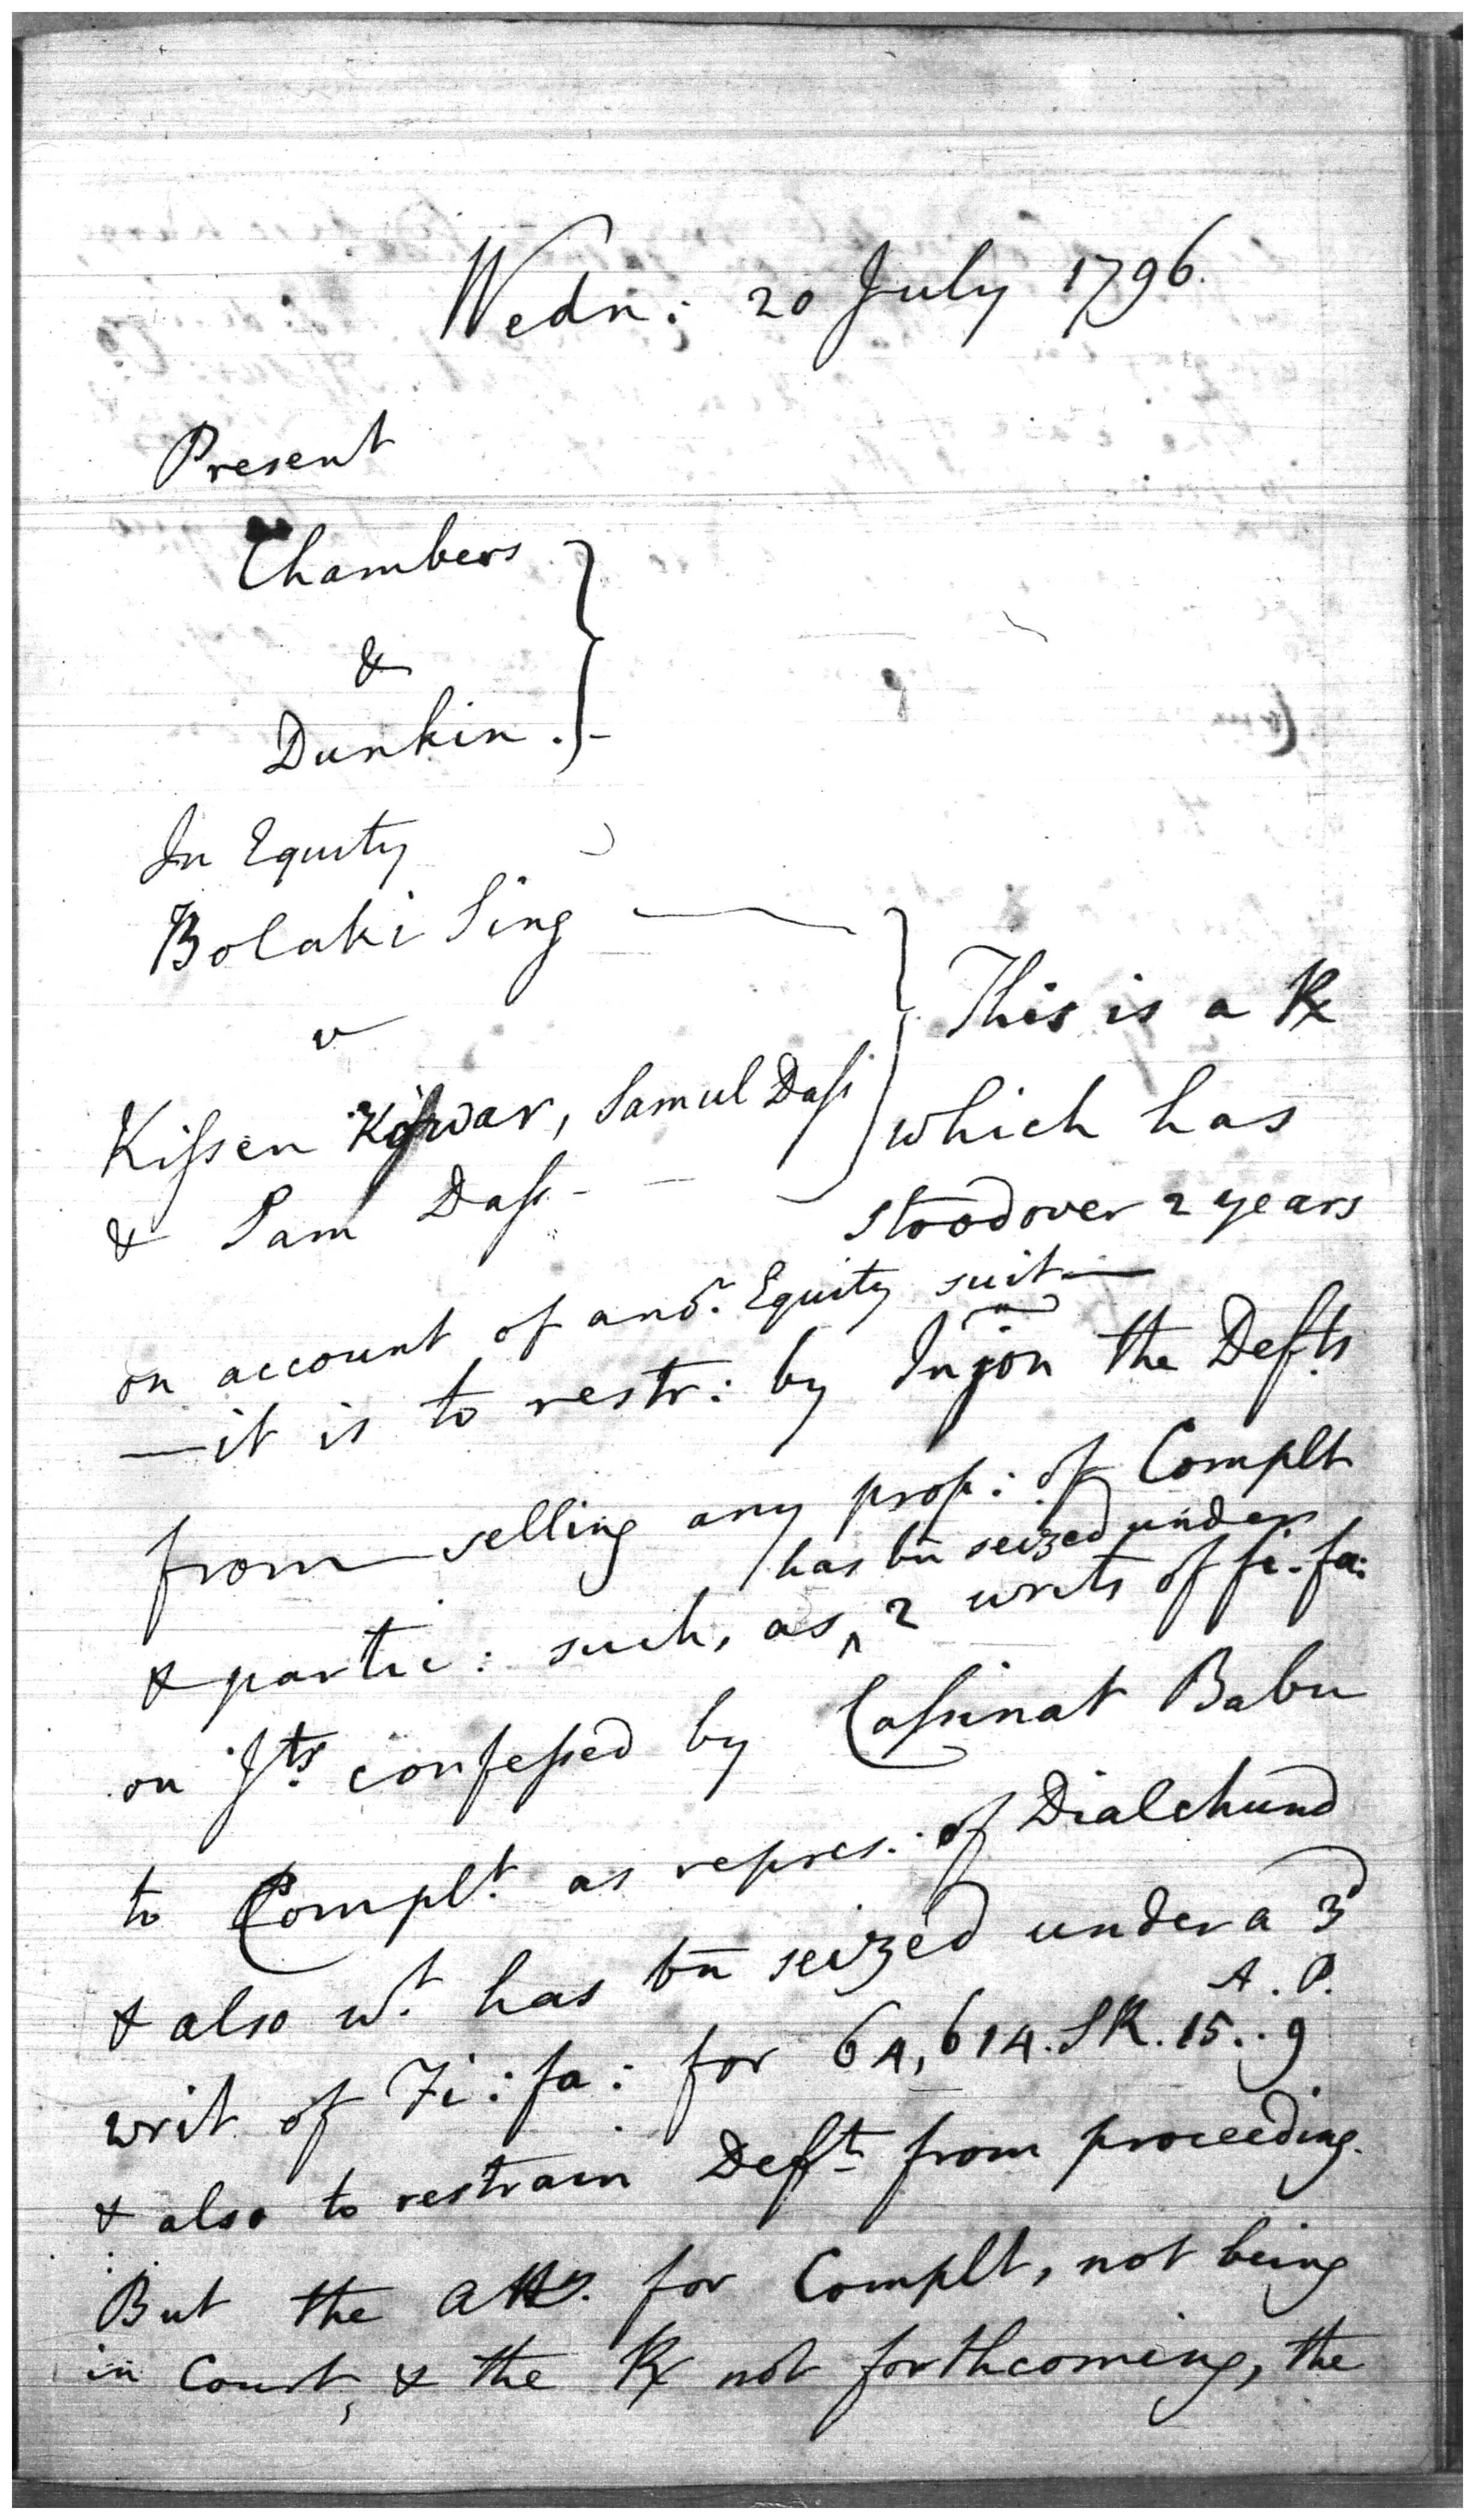 Wedn: 20 July 1796.
Present
Chambers
&
Dunkin.
In Equity
Bolaki Sing
v
Kissen Kowar, Samul Dass
& Sam Dass -
This is a Rx
which has
stood over 2 years
on account of anor. Equity suit —
— it is to restr: by Injon the Defts
from selling any prop: of Complt
has bn seized under
& partic: such, as ^ 2 writs of fi. fa:
on Jts. confessed by Cassinat Babu
to Complt. as repres: of Dialchund
& also wt. has bn seized under a 3d
A. P.
writ of Fi: fa: for 64,614. SR. 15..9
& also to restrain Defts from proceeding.
But the atty. for Complt, not being
in Court, & the Rx not forthcoming, the